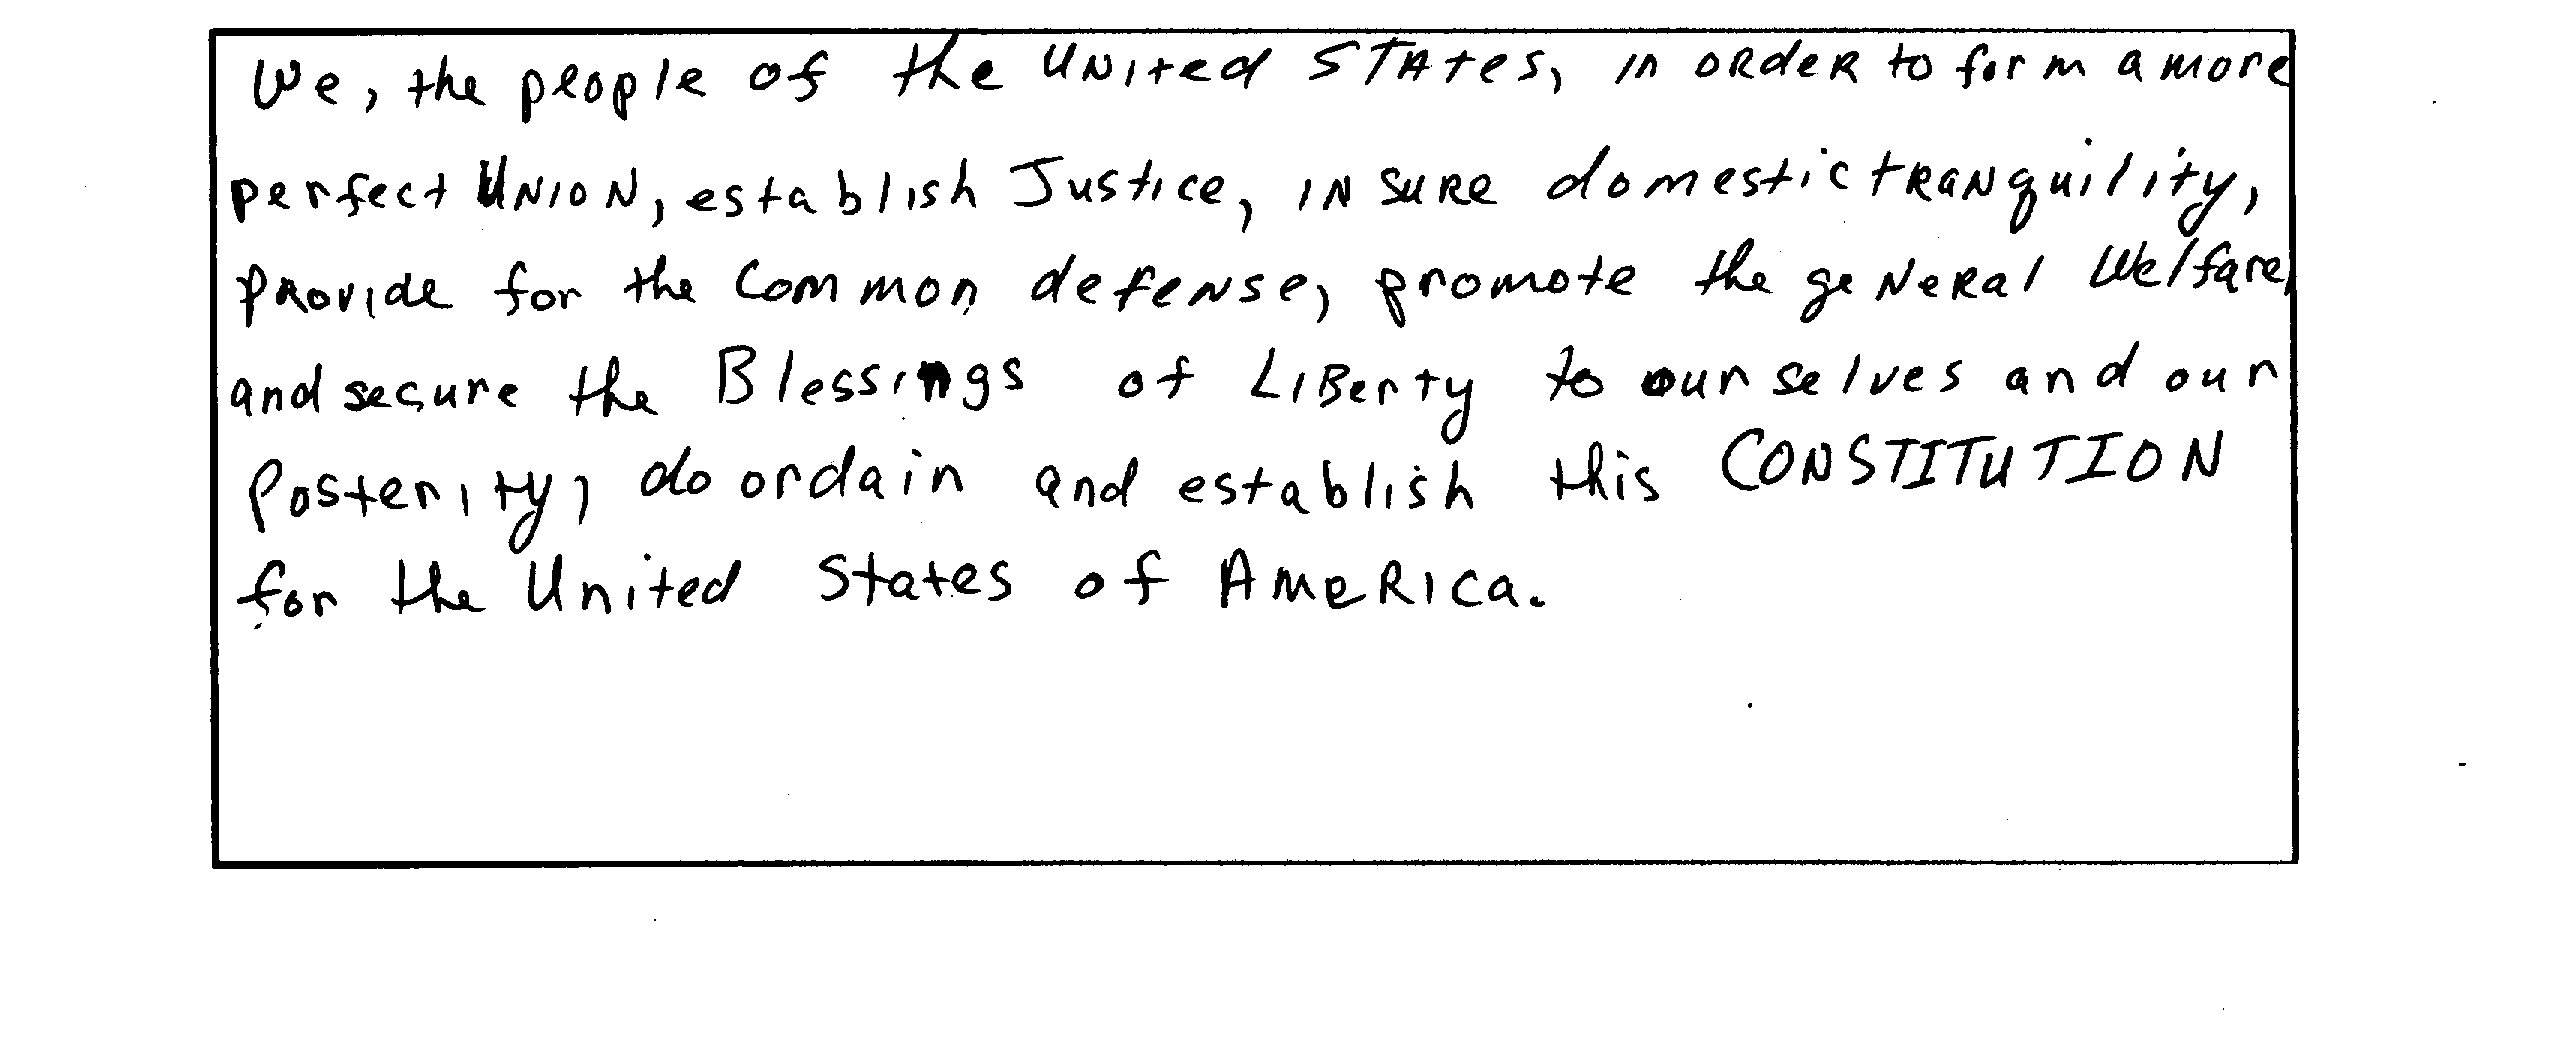 We, the people of the United States, in order to form a more
perfect Union, establish Justice, insure domestic tranquility,
provide for the Common defense, promote the general Welfare,
and secure the Blessings of Liberty to ourselves and our
Posterity, do ordain and establish this CONSTITUTION
for the United States of America.